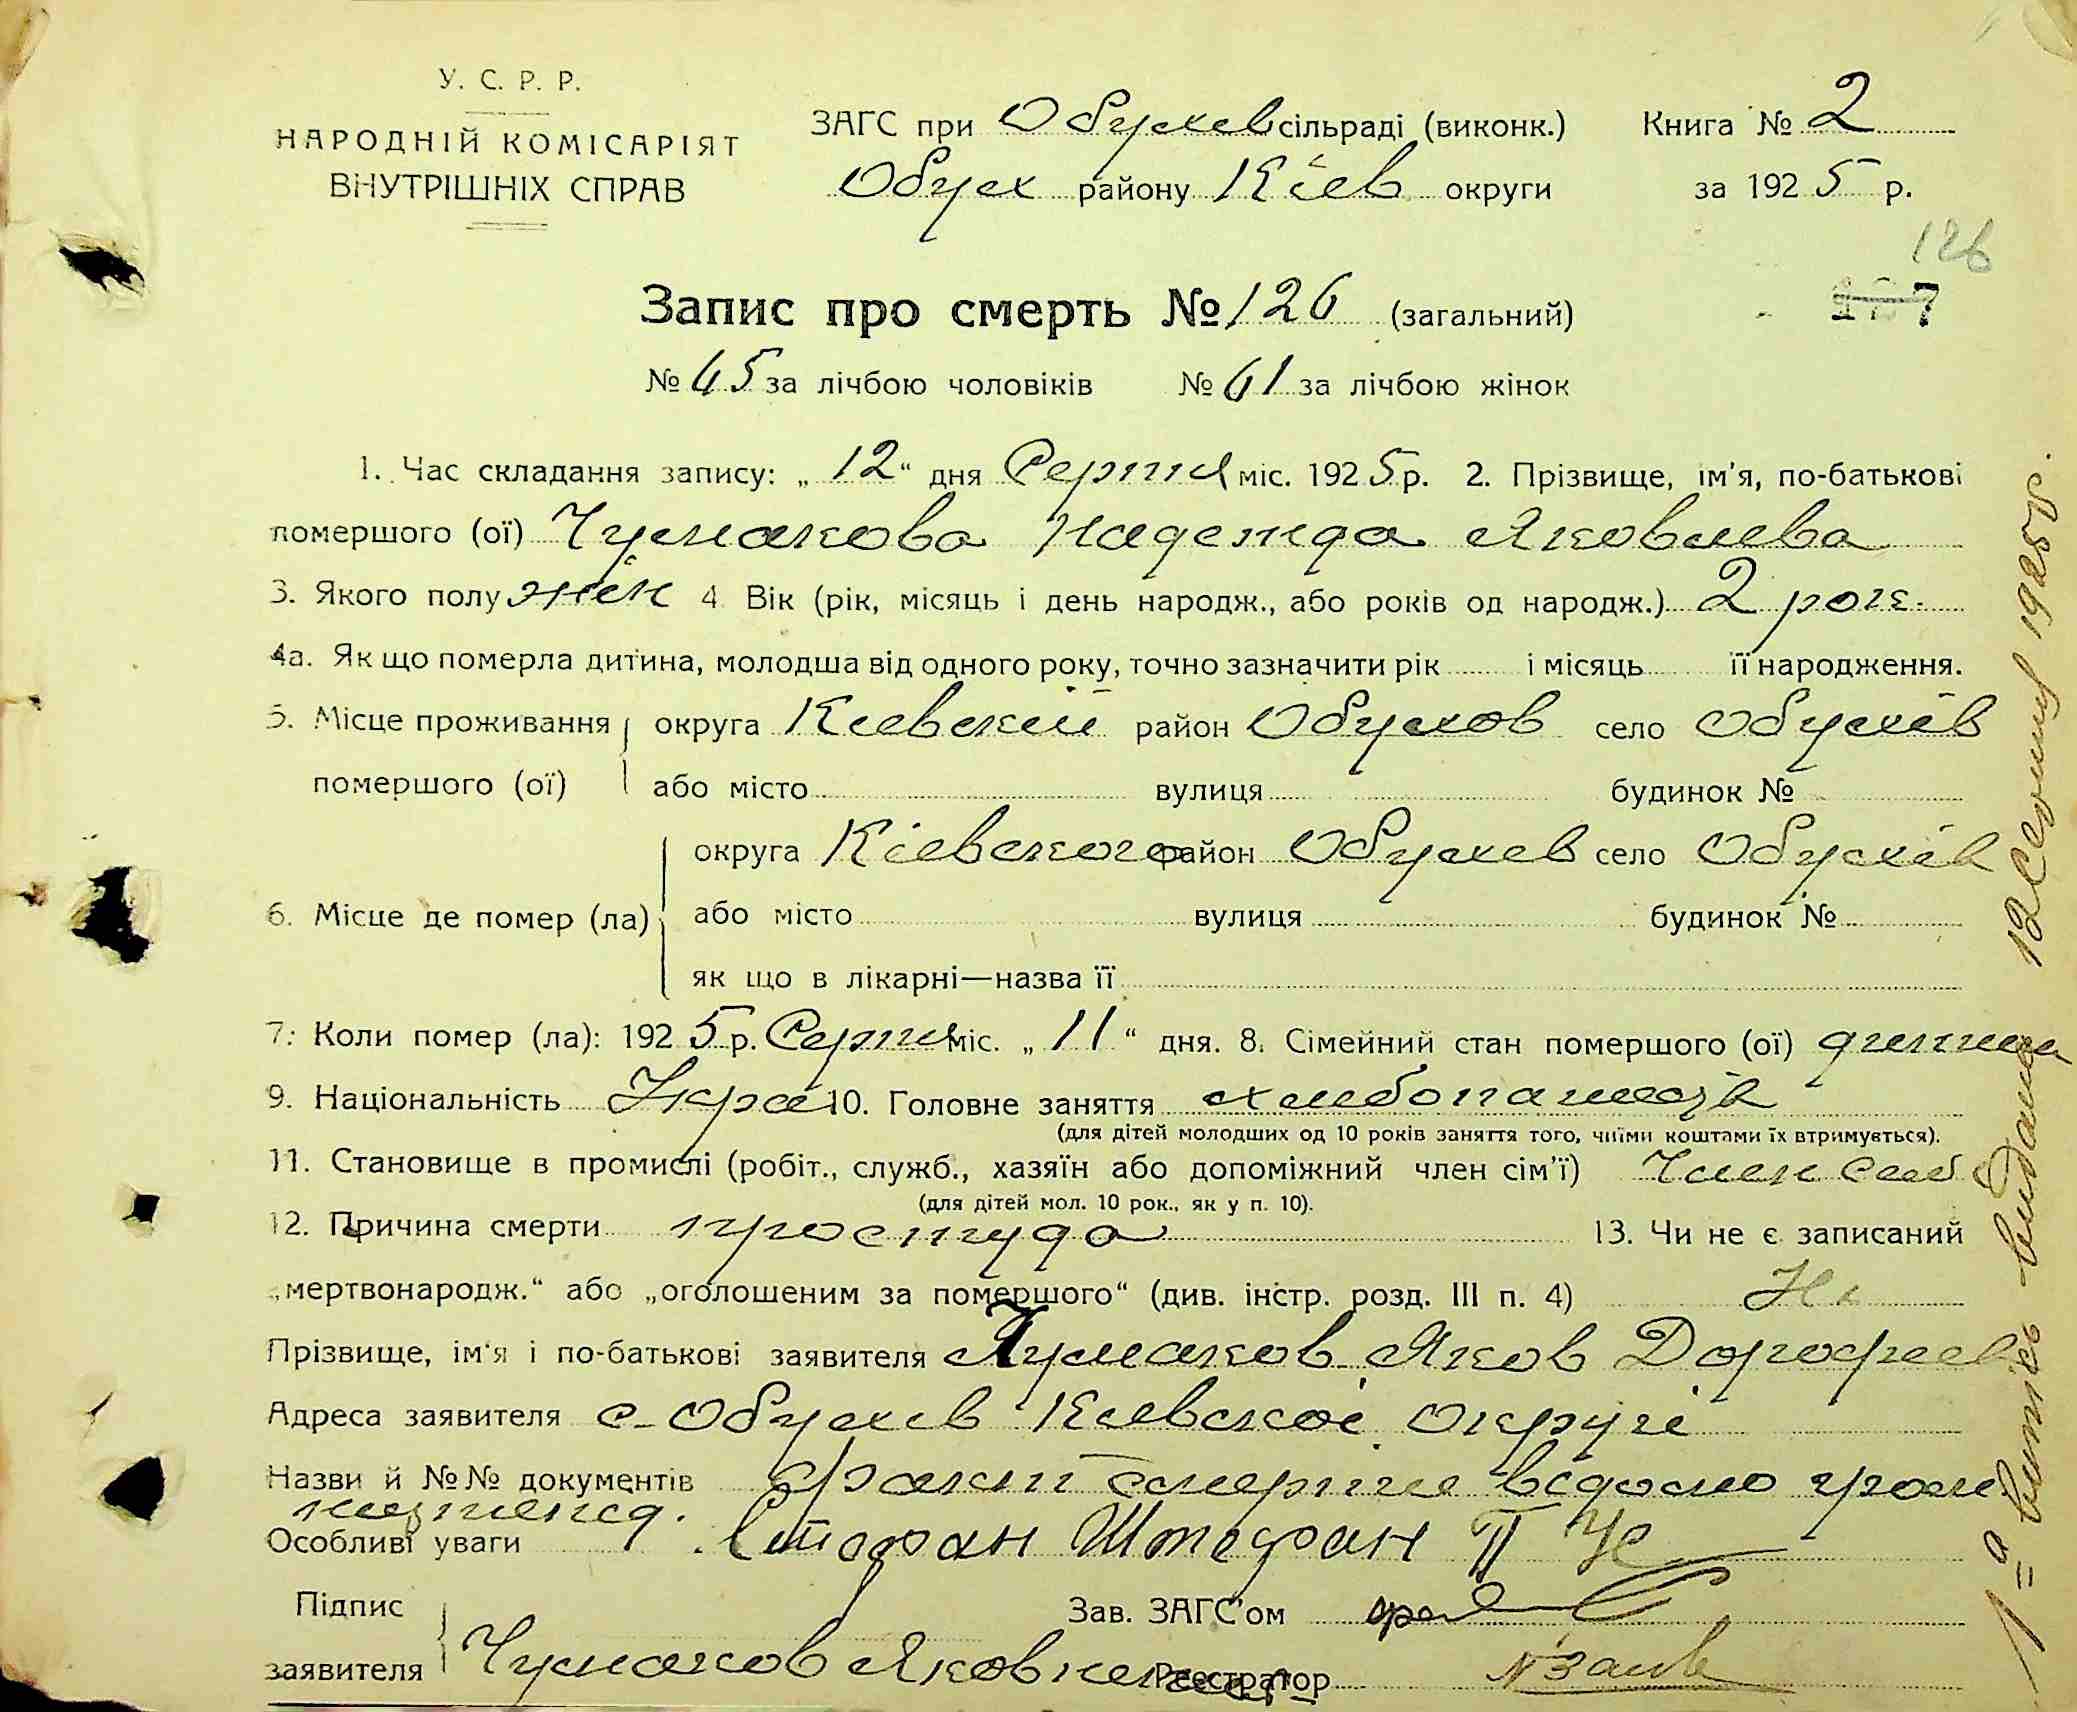 У. С. Р. Р.
НАРОДНІЙ КОМІСАРІЯТ
ВНУТРІШНІХ СПРАВ
ЗАГС при Обухів сільраді (виконк.) Книга № 2
Обух району Київ округи за 1925 р.
126
7
Запис про смерть № 126 (загальний)
№ 65 за лічбою чоловіків № 61 за лічбою жінок
1. Час складання запису: „ 12 “ дня Серпня міс. 1925 р. 2. Прізвище, ім'я, по-батькові
помершого (ої) Чумакова Надежда Яковлева
3. Якого полу жін 4 Вік (рік, місяць і день народж., або років од народж.) 2 рокі
4а. Як що померла дитина, молодша від одного року, точно зазначити рік і місяць її народження.
5. Місце проживання округа Киевский район Обухов село Обухів
помершого (ої) або місто вулиця будинок №
округа Кіевского район Обухів село Обухів
6. Місце де помер (ла) або місто вулиця будинок №
як що в лікарні—назва її
7. Коли помер (ла): 1925 р. Серпня міс. „ 11 “ дня. 8. Сімейний стан помершого (ої) дитина
9. Національність Укра 10. Головне заняття хлибопашець
(для дітей молодших од 10 років заняття того, чиїми коштами їх втримується).
11. Становище в промислі (робіт., служб., хазяїн або допоміжний член сім'ї) Член
(для дітей мол. 10 рок., як у п. 10).
12. Причина смерти простуда 13. Чи не є записаний
„мертвонародж.“ або „оголошеним за помершого“ (див. інстр. розд. III п. 4) Ні
Прізвище, ім'я і по-батькові заявителя Чумаков Яков Дорофеев
Адреса заявителя с. Обухів Киевскоі округі
Назви й №№ документів факт смерти відомо
Особливі уваги Штефан
Підпис
заявителя Чумаков Яков
Зав. ЗАГС'ом
Реєстратор
1=а витпісь видана 12 1925 р.